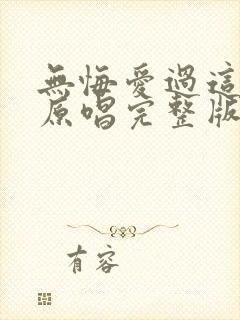 無悔愛過這
原唱完整版
有容